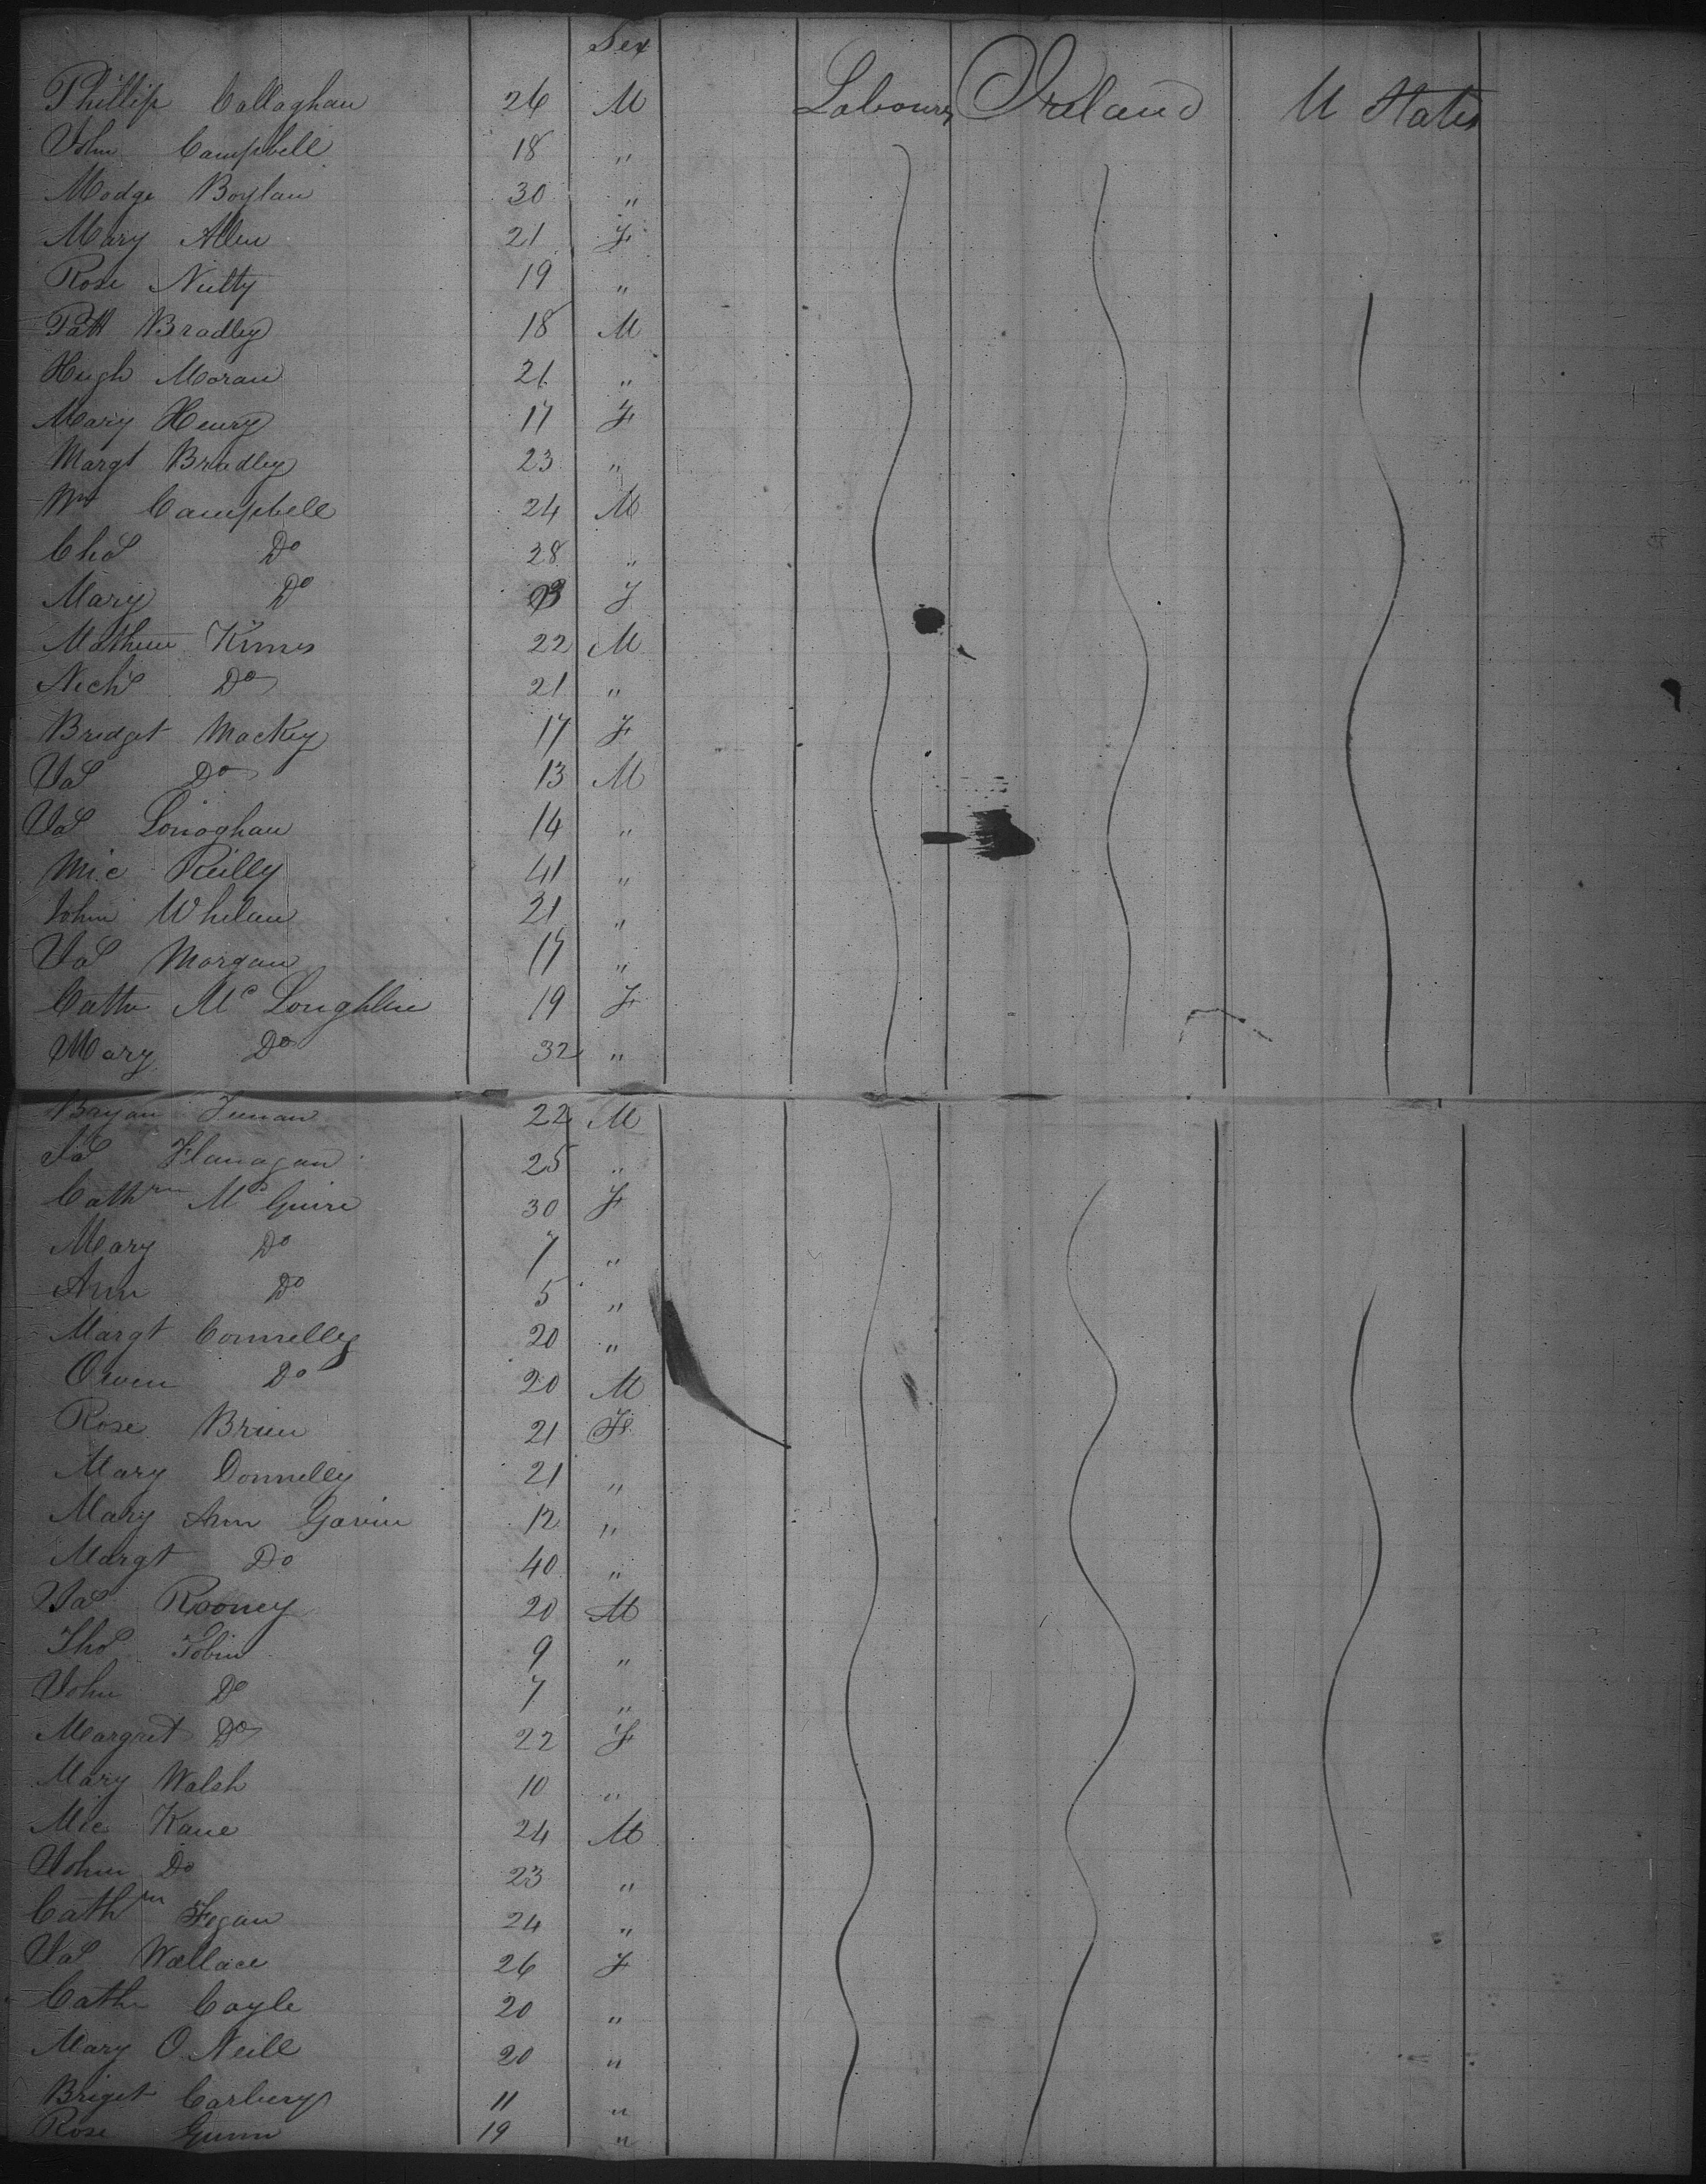 Sex
Phillip Callaghan 26 M Labourer Ireland U States
John Campbell 18 "
Modge Boylan 30 "
Mary Allen 21 F
Rose Nulty 19 "
Patt Bradley 18 M
Hugh Moran 21 "
Mary Henry 17 F
Margt Bradley 23 "
Wm Campbell 24 M
Chas Do 28 "
Mary Do F
Mathew Kimes 22 M
Nichs Do 21 "
Bridget Mackey 17 F
Jas Do 13 M
Jas Lonoghan 14 "
Mic Reilly 41 "
John Whelan 21 "
Jas Morgan 17 "
Cathn Mc Loughlin 19 F
Mary Do 32 "
Bryan 22 M
Jas Flanagan 25 "
Cathrn Mc Guire 30 F
Mary Do 7 "
Ann Do 5 "
Margt Connelly 20 "
Owen Do 20 M
Rose Brien 21 F
Mary Donnelly 21 "
Mary Ann Gavin 12 "
Margt Do 40 "
Jas Rooney 20 M
Thos Tobin 9 "
John Do 7 "
Margret Do 22 F
Mary Walsh 10 "
Mic Kane 24 M
John Do 23 "
Cathrn Fegan 24 "
Jas Wallace 26 F
Cathn Coyle 20 "
Mary O Neill 20 "
Briget Carbery 11 "
Rose Gunn 19 "